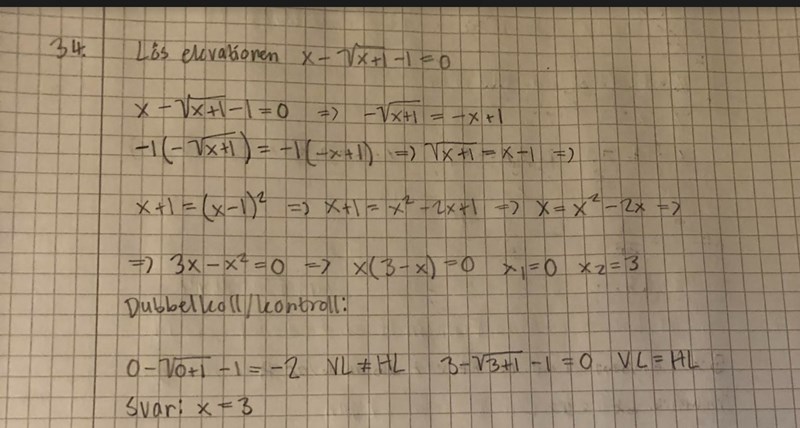 34. Lös ekvationen x-√(x+1)-1=0
x-√(x+1)-1=0 => -√(x+1)=-x+1
-1(-√(x+1))=-1(-x+1) => √(x+1)=x-1 =>
x+1=(x-1)² => x+1=x²-2x+1 => x=x²-2x =>
=> 3x-x²=0 => x(3-x)=0 x₁=0 x₂=3
Dubbelkoll/kontroll:
0-√(0+1)-1=-2 VL≠HL 3-√(3+1)-1=0 VL=HL
Svar: x=3